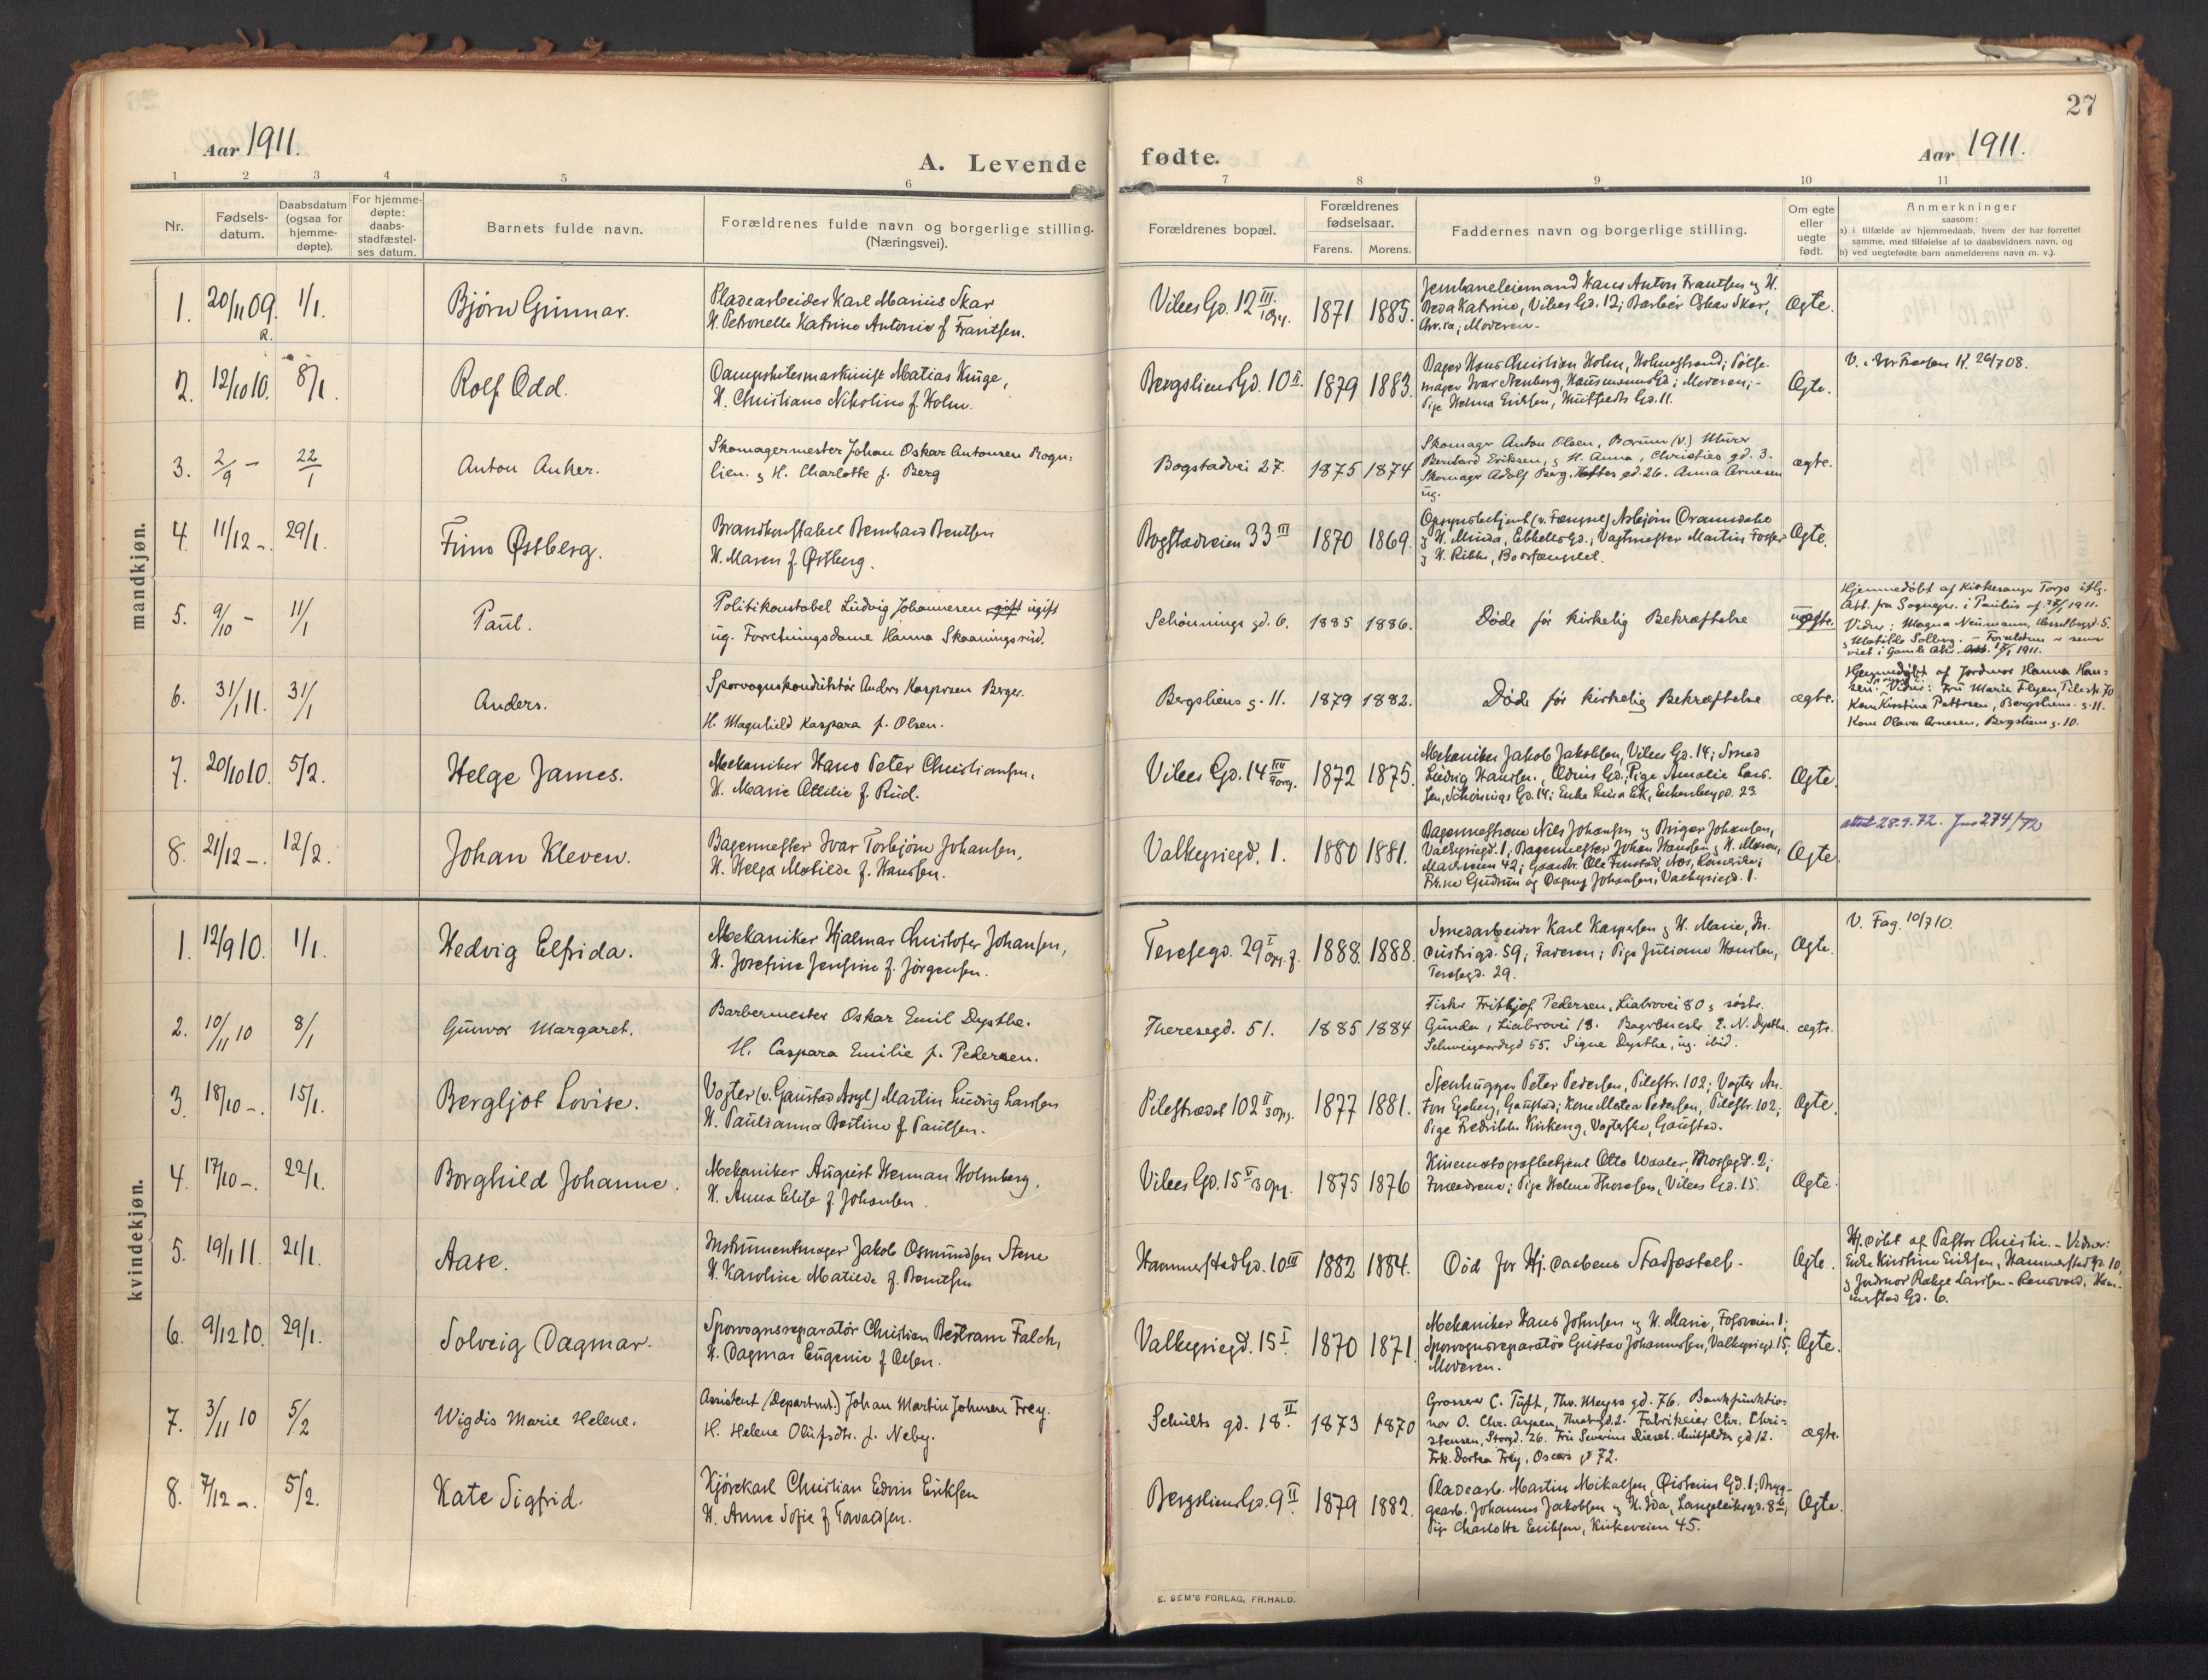 27
Aar 1911.
A. Levende
fødte.
Aar 1911.
1 2 3 4 5 6
7 8 9 10 11
Nr.
Fødsels-
datum.
Daabsdatum
(ogsaa for
hjemme-
døpte).
For hjemme-
døpte:
daabs-
stadfæstel-
ses datum.
Barnets fulde navn.
Forældrenes fulde navn og borgerlige stilling.
(Næringsvei).
Forældrenes bopæl.
Forældrenes
fødselsaar.
Farens. Morens.
Faddernes navn og borgerlige stilling.
Om egte
eller
uegte
født.
Anmerkninger
saasom:
a) i tilfælde av hjemmedaab, hvem der har forrettet
samme, med tilføielse af to daabsvidners navn, og
b) ved uegtefødte barn anmelderens navn m. v.).
mandkjøn.
1. 20/11 09. 1/1. Björn Gunnar.
Pladsarbeider Karl Marius Skar
H. Petronelle Katrine Antonie f. Frantsen.
Vibes Gd. 12 III opg. 1871 1885.
Jernbaneleiemand Hans Anton Frantsen og H.
Beda Katrine, Vibes Gd. 12; Barber Oskar Skar,
Moderen.
Ægte.
2. 12/10 10. 8/1. Rolf Odd.
Dampskibsmaskinist Matias Kinge,
H. Christiane Nikoline f. Holm.
Bergsliens Gd. 10 II. 1879 1883.
Bager Hans Christian Holm, Holmestrand; Pölse-
mager Ivar Stenberg, Hausmanns Gd; Moderen;
Pige Helma Eriksen, Huitfeldts Gd. 11.
Ægte.
K. 26/7 08.
3. 2/9 - 22/1 Anton Anker.
Skomagermester Johan Oskar Antonsen Rogn-
lien. og H. Charlotte f. Berg
Bogstadvei 27. 1875 1874
Skomager Anton Olsen, Bærum (V.) Murer
Bernhard Eriksen, og H. Anna, Christies gd. 3.
Skomager Adolf Berg. Heftes gd. 26. Anna Arnesen
ug.
ægte.
4. 11/12 -. 29/1. Finn Østberg.
Brandkonstabel Bernhard Bentsen
H. Maren f. Østberg.
Bogstadveien 33 III 1870 1869.
Opsynsbetjent (v. Fængsel) Asbjörn Dramdahl
og H. Minda, Ebbells Gd.; Vagtmester Martin Fosser
og H. Rikke, Botsfængslet.
Ægte.
5. 9/10 - 11/1 Paul.
Politikonstabel Ludvig Johannesen gift ugift
ug. Forretningsdame Hanna Skaaningsrud.
Schönnings gd. 6. 1885 1886.
Döde för kirkelig Bekræftelse
uægte.
Hjemmedöbt af Kirkesanger Torp
Att. fra Sognepr. i Paulus af 1911.
Vidner: Magna Neumann, Hesselbergsgd. 5.
og Matilde Solberg. - Forældrene er senere
viet i Gamle Aker 1911.
6. 31/1 11. 31/1 Anders.
Sporvognskonduktör Anders Kaspersen Berger.
H. Magnhild Kaspara f. Olsen.
Bergsliens g. 11. 1879 1882.
Döde för kirkelig Bekræftelse
ægte.
Hjemmedöbt af Jordmor Hanna Han-
sen. Vidner: Fru Marie Flygen, Pilestr. 70
Kone Kirstine Pettersen, Bergsliens g. 11.
Kone Olava Arnesen, Bergsliens g. 10.
7. 20/10 10. 5/2. Helge James.
Mekaniker Hans Peter Christiansen,
H. Marie Ottilie f. Rud.
Vibes Gd. 14 III opg. 1872 1875.
Mekaniker Jakob Jakobsen, Vibes Gd. 14; Smed
Ludvig Hansen, Odins Gd; Pige Amalie Lar-
sen, Schönings Gd. 14; Enke Lina Ek, Eckersbergsgd. 23
Ægte.
8. 21/12 -. 12/2. Johan Kleven.
Bagermester Ivar Torbjörn Johansen,
H. Helga Matilde f. Hansen.
Valkyriegd. 1. 1880 1881.
Bagermestrene Nils Johansen og Birger Johansen,
Valkyriegd. 1; Bagermester Johan Hansen og H. Maren,
42; Gaardbr. Ole Finstad, Nes, Romerike;
Frk.ne Gudrun og Dagny Johansen, Valkyriegd. 1.
Ægte.
attest 28.9.72. Jnr 274/72
kvindekjøn.
1. 12/9 10. 1/1. Hedvig Elfrida.
Mekaniker Hjalmar Christofer Johansen,
H. Josefine Jensine f. Jörgensen.
Teresegd. 29 I opg. f. 1888. 1888.
Smedarbeider Karl Kaspersen og H. Marie, In-
dustrigd. 59; Faderen; Pige Juliane Hansen,
Teresegd. 29.
Ægte.
V. Fag. 10/7 10.
2. 10/11 10 8/1 Gunvor Margaret.
Barbermester Oskar Emil Dysthe.
H. Caspara Emilie f. Pedersen.
Theresegd. 51. 1885 1884
Fisker Frithjof Pedersen, Liabrovei 80 og söster
Gunda, Liabrovei 18. Bagermester E. N. Dysthe.
Schweigaardsgd 55. Signe Dysthe, ug. ibid.
ægte.
3. 18/10 -. 15/1. Bergljot Lovise.
Vogter (v. Gaustad Asyl) Martin Ludvig Larsen
H. Paulianna Bertine f. Paulsen.
Pilestrædet 102 II opg. 1877 1881.
Stenhugger Peter Pedersen, Pilestr. 102; Vogter An-
ton Egeberg, Gaustad; Kone Matea Pedersen, Pilestr. 102;
Pige Fredrikke Kirkeng, Vogterske, Gaustad.
Ægte.
4. 17/10 -. 22/1. Borghild Johanne.
Mekaniker August Herman Holmberg.
H. Anna Elise f. Johansen.
Vibes Gd. 15 V opg. 1875 1876
Kinematografbetjent Otto Waaler, Mossegd. 2;
Forældrene; Pige Helene Thoresen, Vibes Gd. 15.
Ægte.
5. 19/1 11. 21/1. Aase.
Instrumentmager Jakob Osmundsen Stene
H. Karoline Matilde f. Berntsen
Hammerstad Gd. 10 III 1882 1884.
Död för Hj. daabens Stadfæstelse.
Ægte.
Hj. döbt af Pastor Christie. - Vidner:
Enke Kirstine Eriksen, Hammerstad Gd. 10,
og Jordmor Larsen-Renovold, Ham-
merstad Gd. 6.
6. 9/12 10. 29/1. Solveig Dagmar.
Sporvognsreparatör Christian Bertram Falch,
H. Dagmar Eugenie f. Olsen.
Valkyriegd. 15 I. 1870 1871
Mekaniker Hans Johnsen og H. Marie, Fossveien 1;
Sporvognsreparatör Gustav Johannesen, Valkyriegd. 15;
Moderen.
Ægte.
7. 3/11 10 5/2 Wigdis Marie Helene.
Assistent (Departmt.) Johan Martin Johnsen Frey.
H. Helene Olufsdtr. f. Neby.
Schultz gd. 18 II. 1873 1870
Grosserer C. Tuft, Thv. Meyers gd. 76. Bankfunktio-
nær O. Chr. Aspen, 2. Fabrikeier Chr. Chri-
stensen, Storgd. 26. Fru Severine Diesel. Huitfeldts gd 12.
Frk. Dortea Frey, Oscars gd 72.
ægte.
8. 7/12 -. 5/2. Kate Sigfrid.
Kjörekarl Christian Edvin Eriksen
H. Anne Sofie f. Torvaldsen.
Bergsliens Gd. 9 II. 1879 1882.
Pladsarb. Martin Mikalsen, Öisteins Gd. 1; Bryg-
gearb. Johannes Jakobsen og H. Ida, Langeleiksgd. 8
Pige Charlotte Eriksen, Kirkeveien 45.
Ægte.
E. SEM'S FORLAG, FR.HALD.